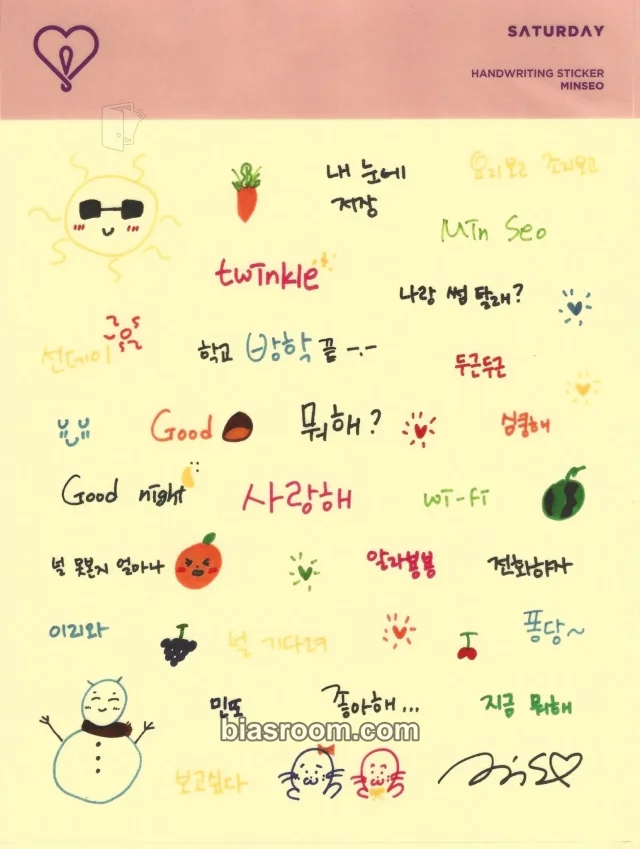 SATURDAY
HANDWRITING STICKER
MINSEO
내 눈에
저장
요리보고 조리보고
Min Seo
twinkle
나랑 썸 탈래?
선데이
학교 방학 끝 -.-
두근두근
Good
뭐해?
심쿵해
Good night
사랑해
wi-fi
널 못본지 얼마나
알라뿅뿅
전화하자
이리와
널 기다려
퐁당~
민또
좋아해...
지금 뭐해
biasroom.com
보고싶다